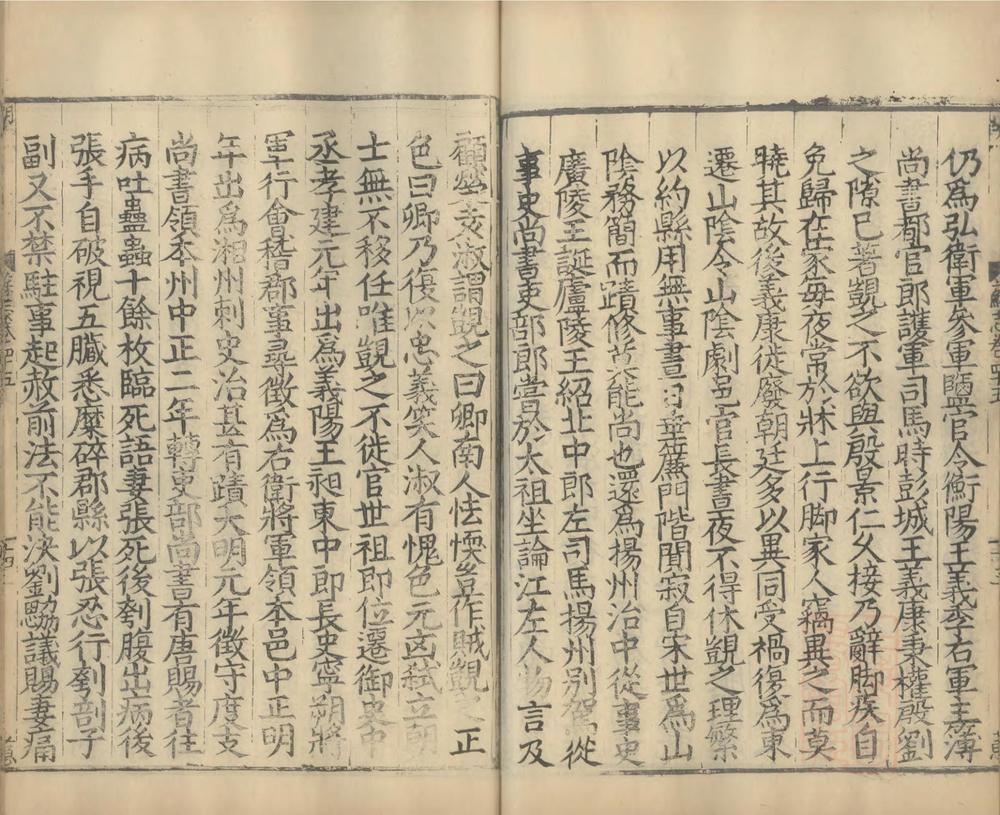 仍爲弘衛軍參軍鹽官令衡陽王義季右軍主簿
尚書都官郎護軍司馬時彭城王義康秉權殷劉
之隙已著覬之不欲與殷景仁乆接乃辭脚疾自
免歸在家每夜常於牀上行脚家人竊異之而莫
曉其故後義康徙廢朝廷多以異同受禍復爲東
遷山陰令山陰劇邑官長晝夜不得休覬之理繁
以約縣用無事晝日垂簾門階閑寂自宋世爲山
陰務簡而蹟修莫能尚也還爲揚州治中從事史
廣陵王誕廬陵王紹北中郎左司馬揚州別駕從
事史尚書吏部郎嘗於太祖坐論江左人物言及
顧榮袁淑謂覬之曰卿南人怯懦豈作賊覬之正
色曰卿乃復以忠義笑人淑有愧色元凶弑立朝
士無不移任唯覬之不徙官世祖即位遷御史中
丞孝建元年出爲義陽王昶東中郎長史寧朔將
軍行會稽郡事尋徵爲右衛將軍領本邑中正明
年出爲湘州刺史治甚有蹟大明元年徵守度支
尚書領本州中正二年轉吏部尚書有唐賜者往
病吐蠱蟲十餘枚臨死語妻張死後刳腹出病後
張手自破視五臟悉糜碎郡縣以張忍行刳剖子
副又不禁駐事起赦前法不能決劉勰議賜妻痛